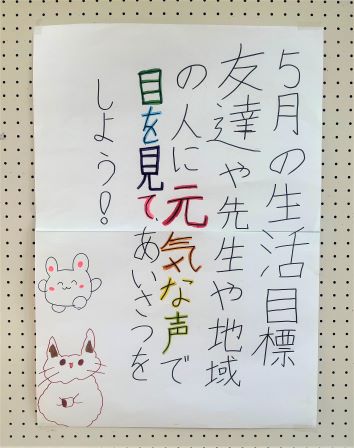 5月の生活目標
友達や先生や地域
の人に元気な声で
目を見て、あいさつを
しよう!